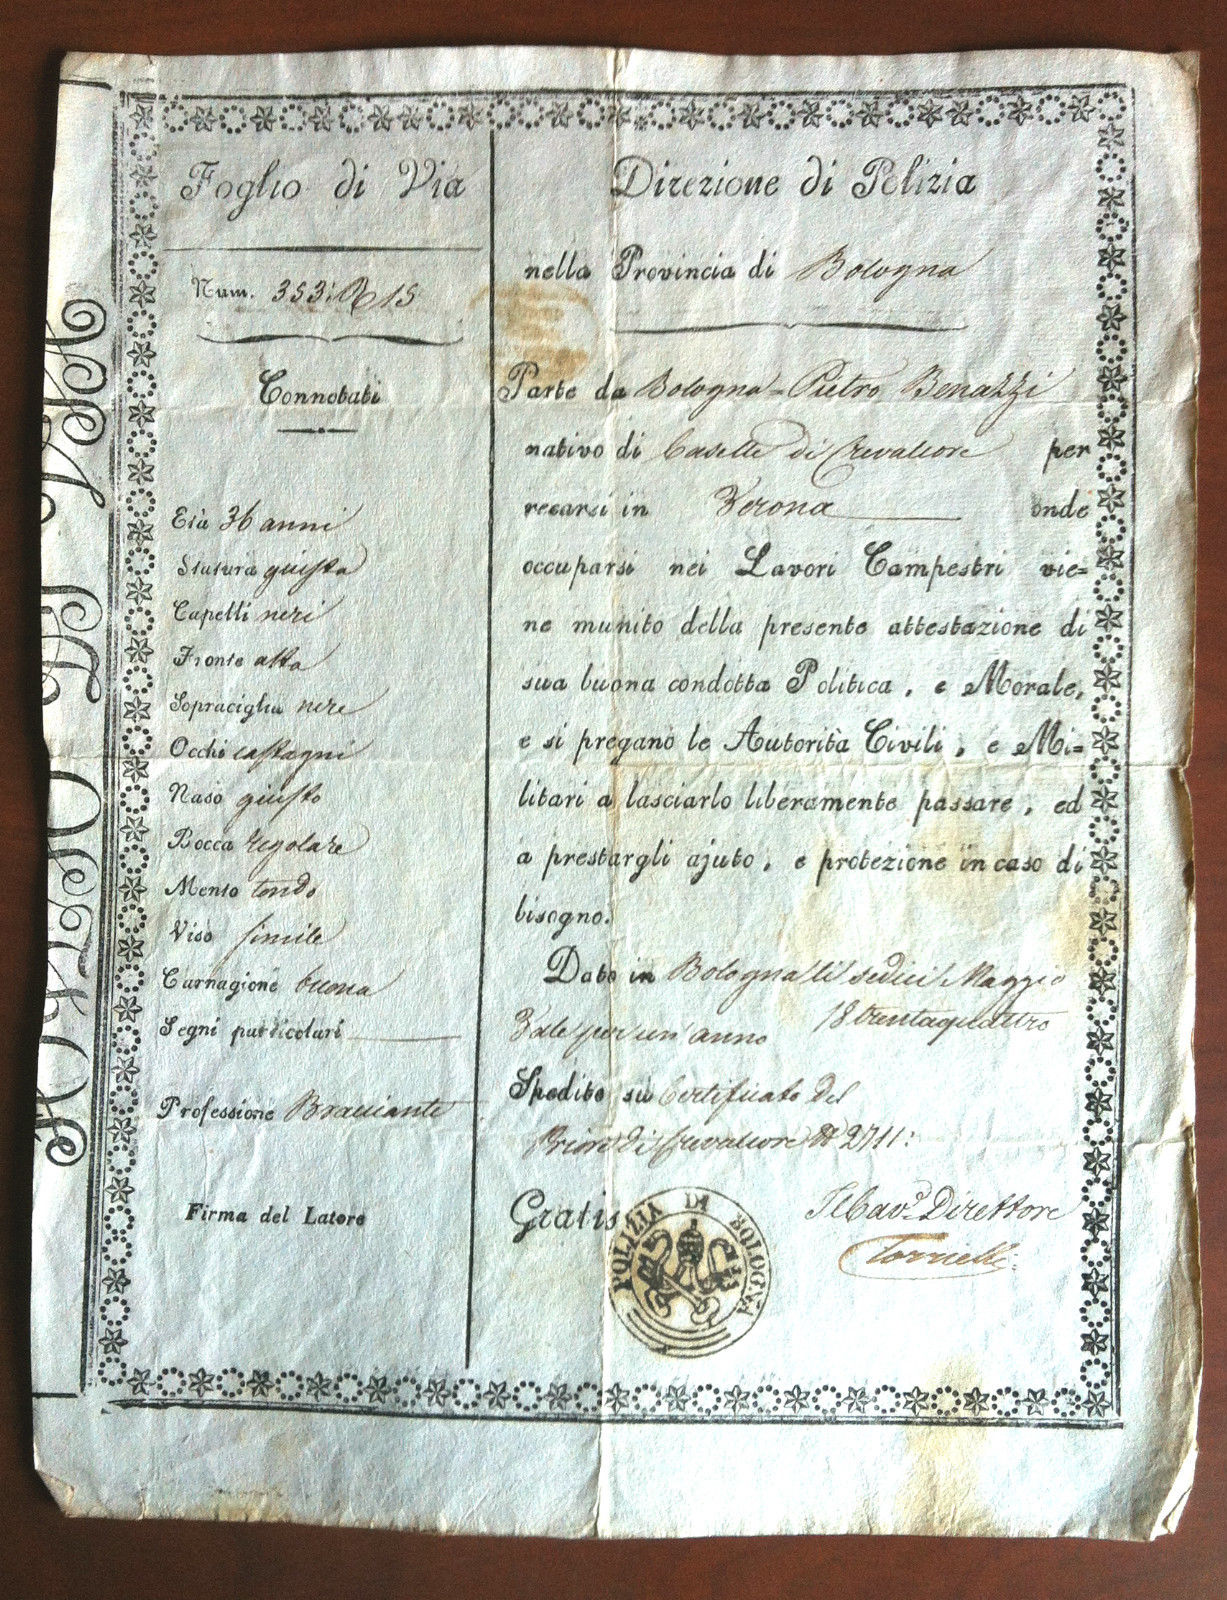 Foglio di Via
Num. 353: R 15
Connotati
Età 36 anni
Statura giusta
Capelli neri
Fronte alta
Sopraciglia nere
Occhi castagni
Naso giusto
Bocca regolare
Mento tondo
Viso simile
Carnagione buona
Segni particolari
Professione Bracciante
Firma del Latore
Direzione di Polizia
nella Provincia di Bologna
Parte da Bologna - Pietro Benazzi
nativo di Caselle di Crevalcore per
recarsi in Verona onde
occuparsi nei Lavori Campestri vie=
ne munito della presente attestazione di
sua buona condotta Politica, e Morale,
e si pregano le Autorità Civili, e Mi=
litari a lasciarlo liberamente passare, ed
a prestargli ajuto, e protezione in caso di
bisogno.
Dato in Bologna li sedici Maggio
18trentaquattro
Vale per un'anno
Spedito su Certificato del
Priore di Crevalcore N 2711:
Gratis
POLIZIA DI BOLOGNA
Il Cav.e Direttore